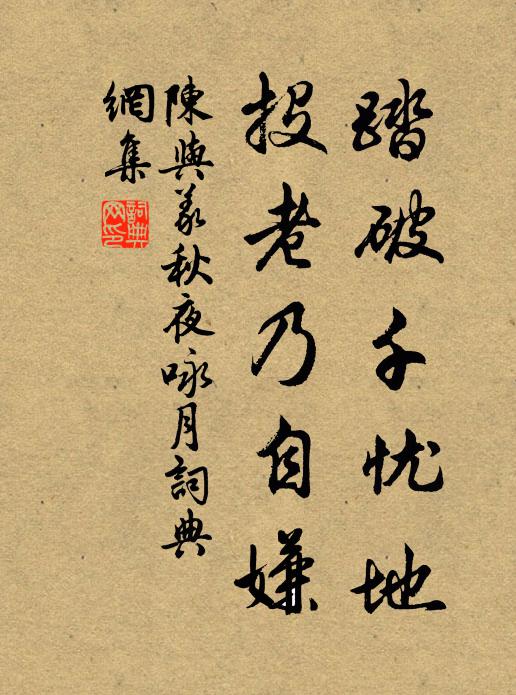 踏破千忧地
投老乃自嫌
陳與義秋夜咏月詞典
網集
詞典
网印